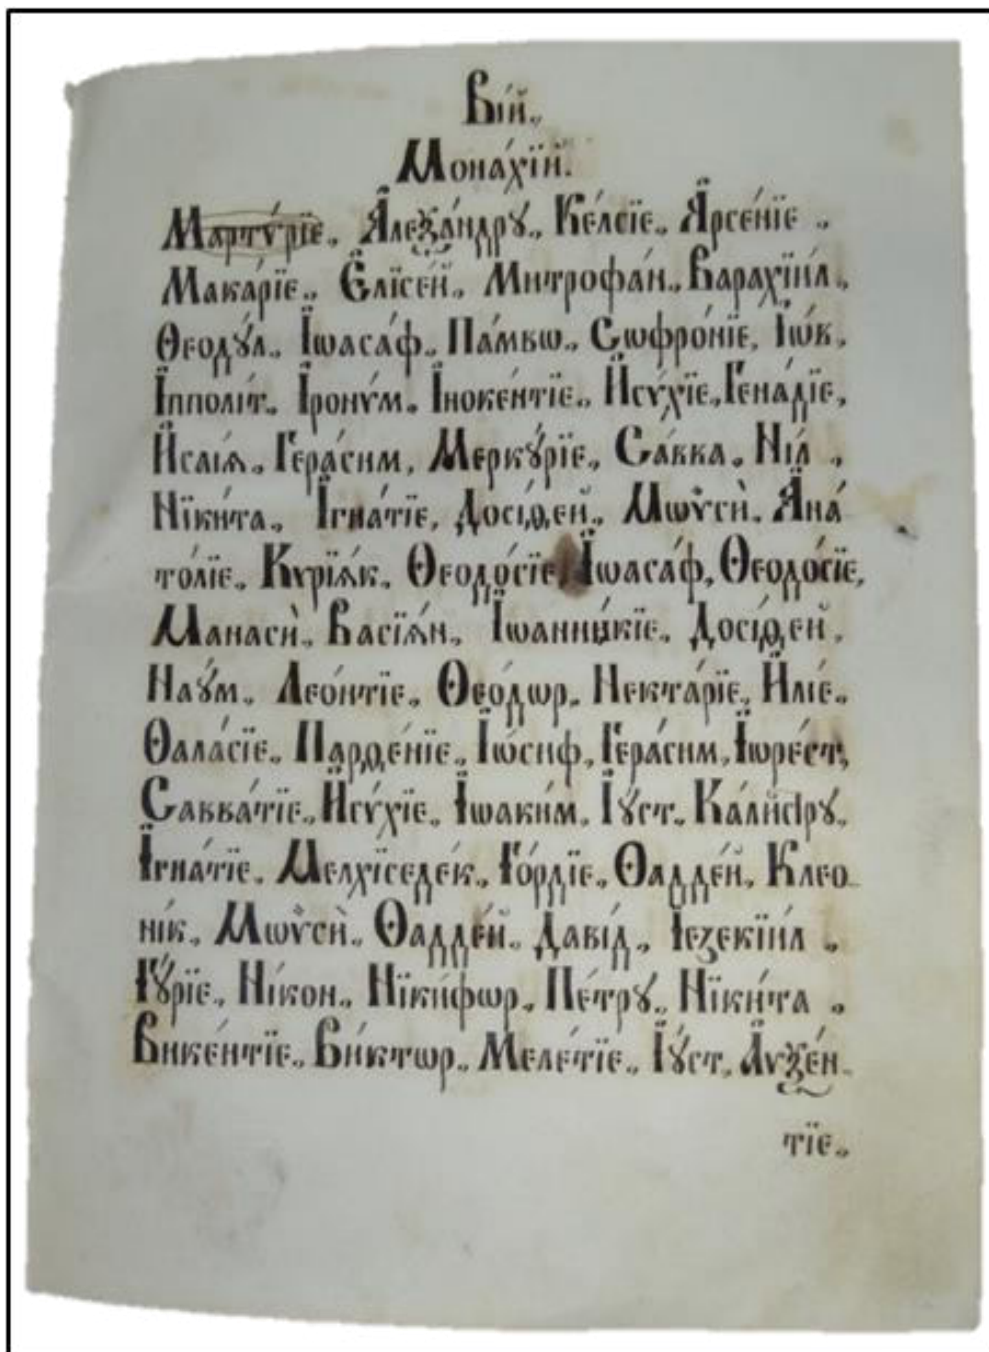 Вїи́.
Мона́хїй.
Мартѵ́рїе. А҆леѯа́ндрꙋ. Ке́лсїе. А҆рсе́нїе.
Мака́рїе. Е҆лїсе́й. Митрофа́н. Варахїи́л.
Ѳеодꙋ́л. І҆ѡаса́ф. Па́мвѡ. Сѡфро́нїе. І҆ѡ́в.
І҆пполі́т. І҆ронѵ́м. І҆ноке́нтїе. И҆сѵ́хїе. Гена́дїе.
И҆саі́ѧ. Гера́сим. Меркꙋ́рїе. Са́вва. Ні́л.
Нїки́та. І҆гна́тїе. Досі́ѳей. Мѡѷсѝ. А҆на́
то́лїе. Кѵрїѧ́к. Ѳеодо́сїе. І҆ѡаса́ф. Ѳеодо́сїе.
Манасѝ. Васїѧ́н. І҆ѡанни́кїе. Досі́ѳей.
Наꙋ́м. Лео́нтїе. Ѳео́дѡр. Некта́рїе. И҆лі́е.
Ѳала́сїе. Парѳе́нїе. І҆ѡ́сиф. Гера́сим. І҆ѡре́ст.
Савва́тїе. И҆сѵ́хїе. І҆ѡаки́м. І҆ꙋ́ст.
І҆гна́тїе. Мелхїседе́к. Го́рдїе. Ѳадде́й. Клео
ні́к. Мѡѷсѝ. Ѳадде́й. Даві́д. І҆езекїи́л.
Гꙋ́рїе. Ні́кон. Нїки́фѡр. Пе́трꙋ. Нїки́та.
Вике́нтїе. Ви́ктѡр. Меле́тїе. І҆ꙋ́ст. А҆ѵѯе́н
тїе.